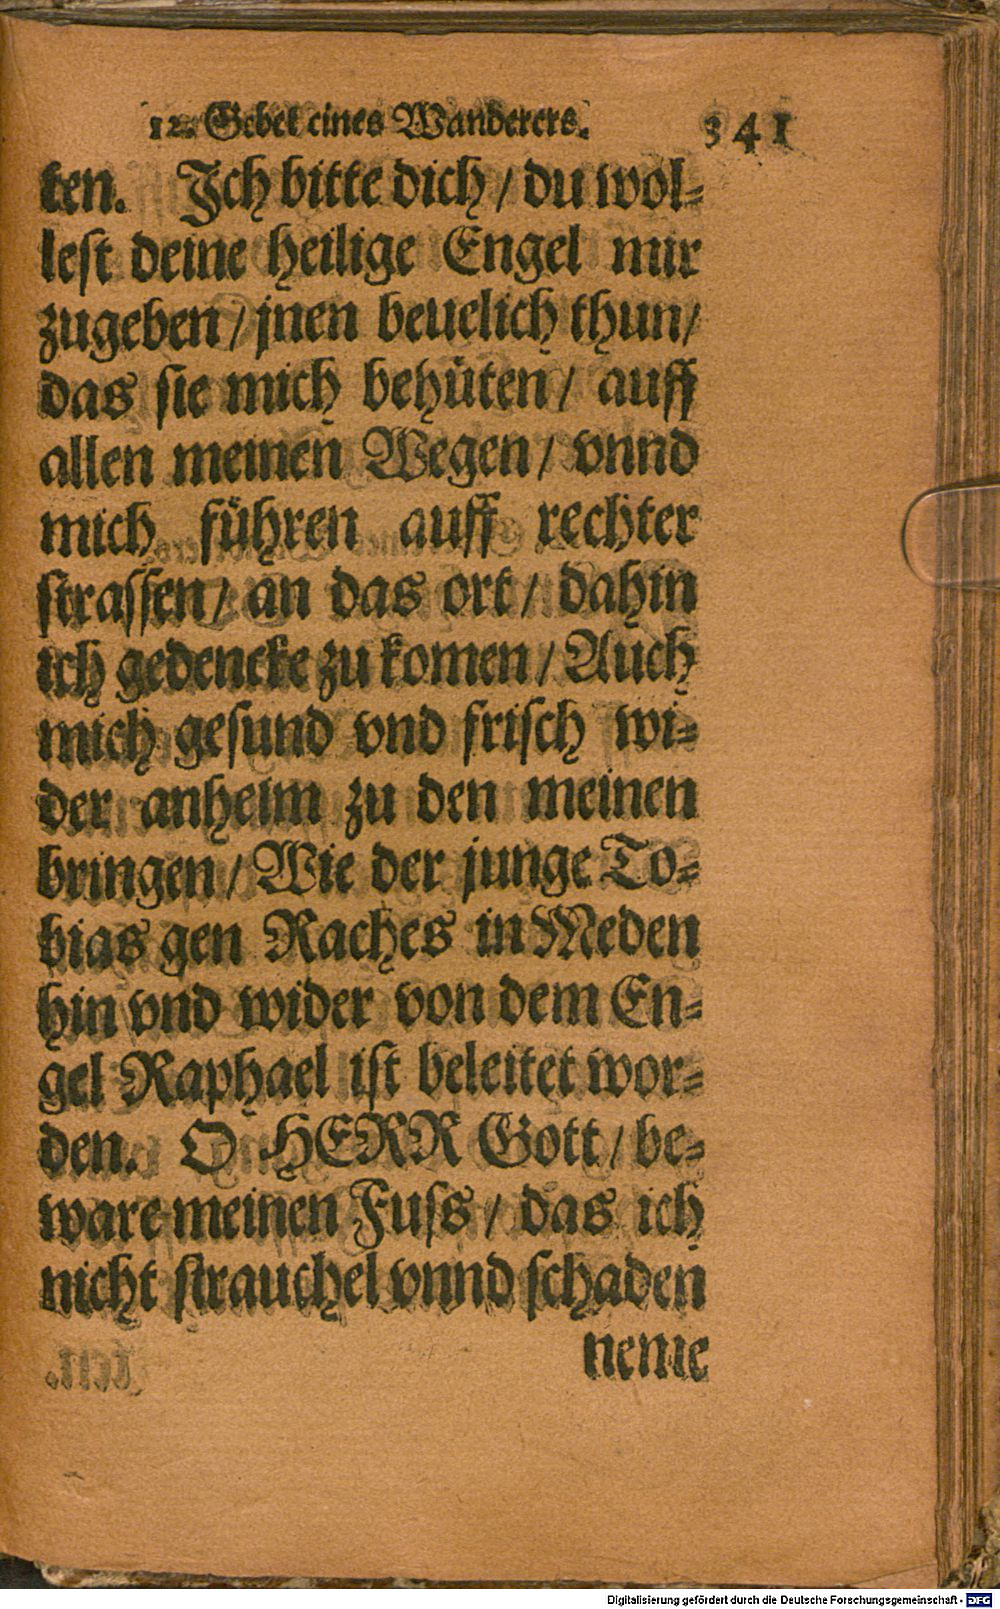 12. Gebet eines Wanderers. 341
ten. Ich bitte dich / du wol⸗
lest deine heilige Engel mir
zugeben / jnen beuelich thun /
das sie mich behüten / auff
allen meinen Wegen / vnnd
mich führen auff rechter
strassen / an das ort / dahin
ich gedencke zu komen / Auch
mich gesund vnd frisch wi⸗
der anheim zu den meinen
bringen / Wie der junge To⸗
bias gen Raches in Meden
hin vnd wider von dem En⸗
gel Raphael ist beleitet wor⸗
den. O HERR Gott / be⸗
ware meinen Fuss / das ich
nicht strauchel vnnd schaden
neme
Digitalisierung gefördert durch die Deutsche Forschungsgemeinschaft - DFG